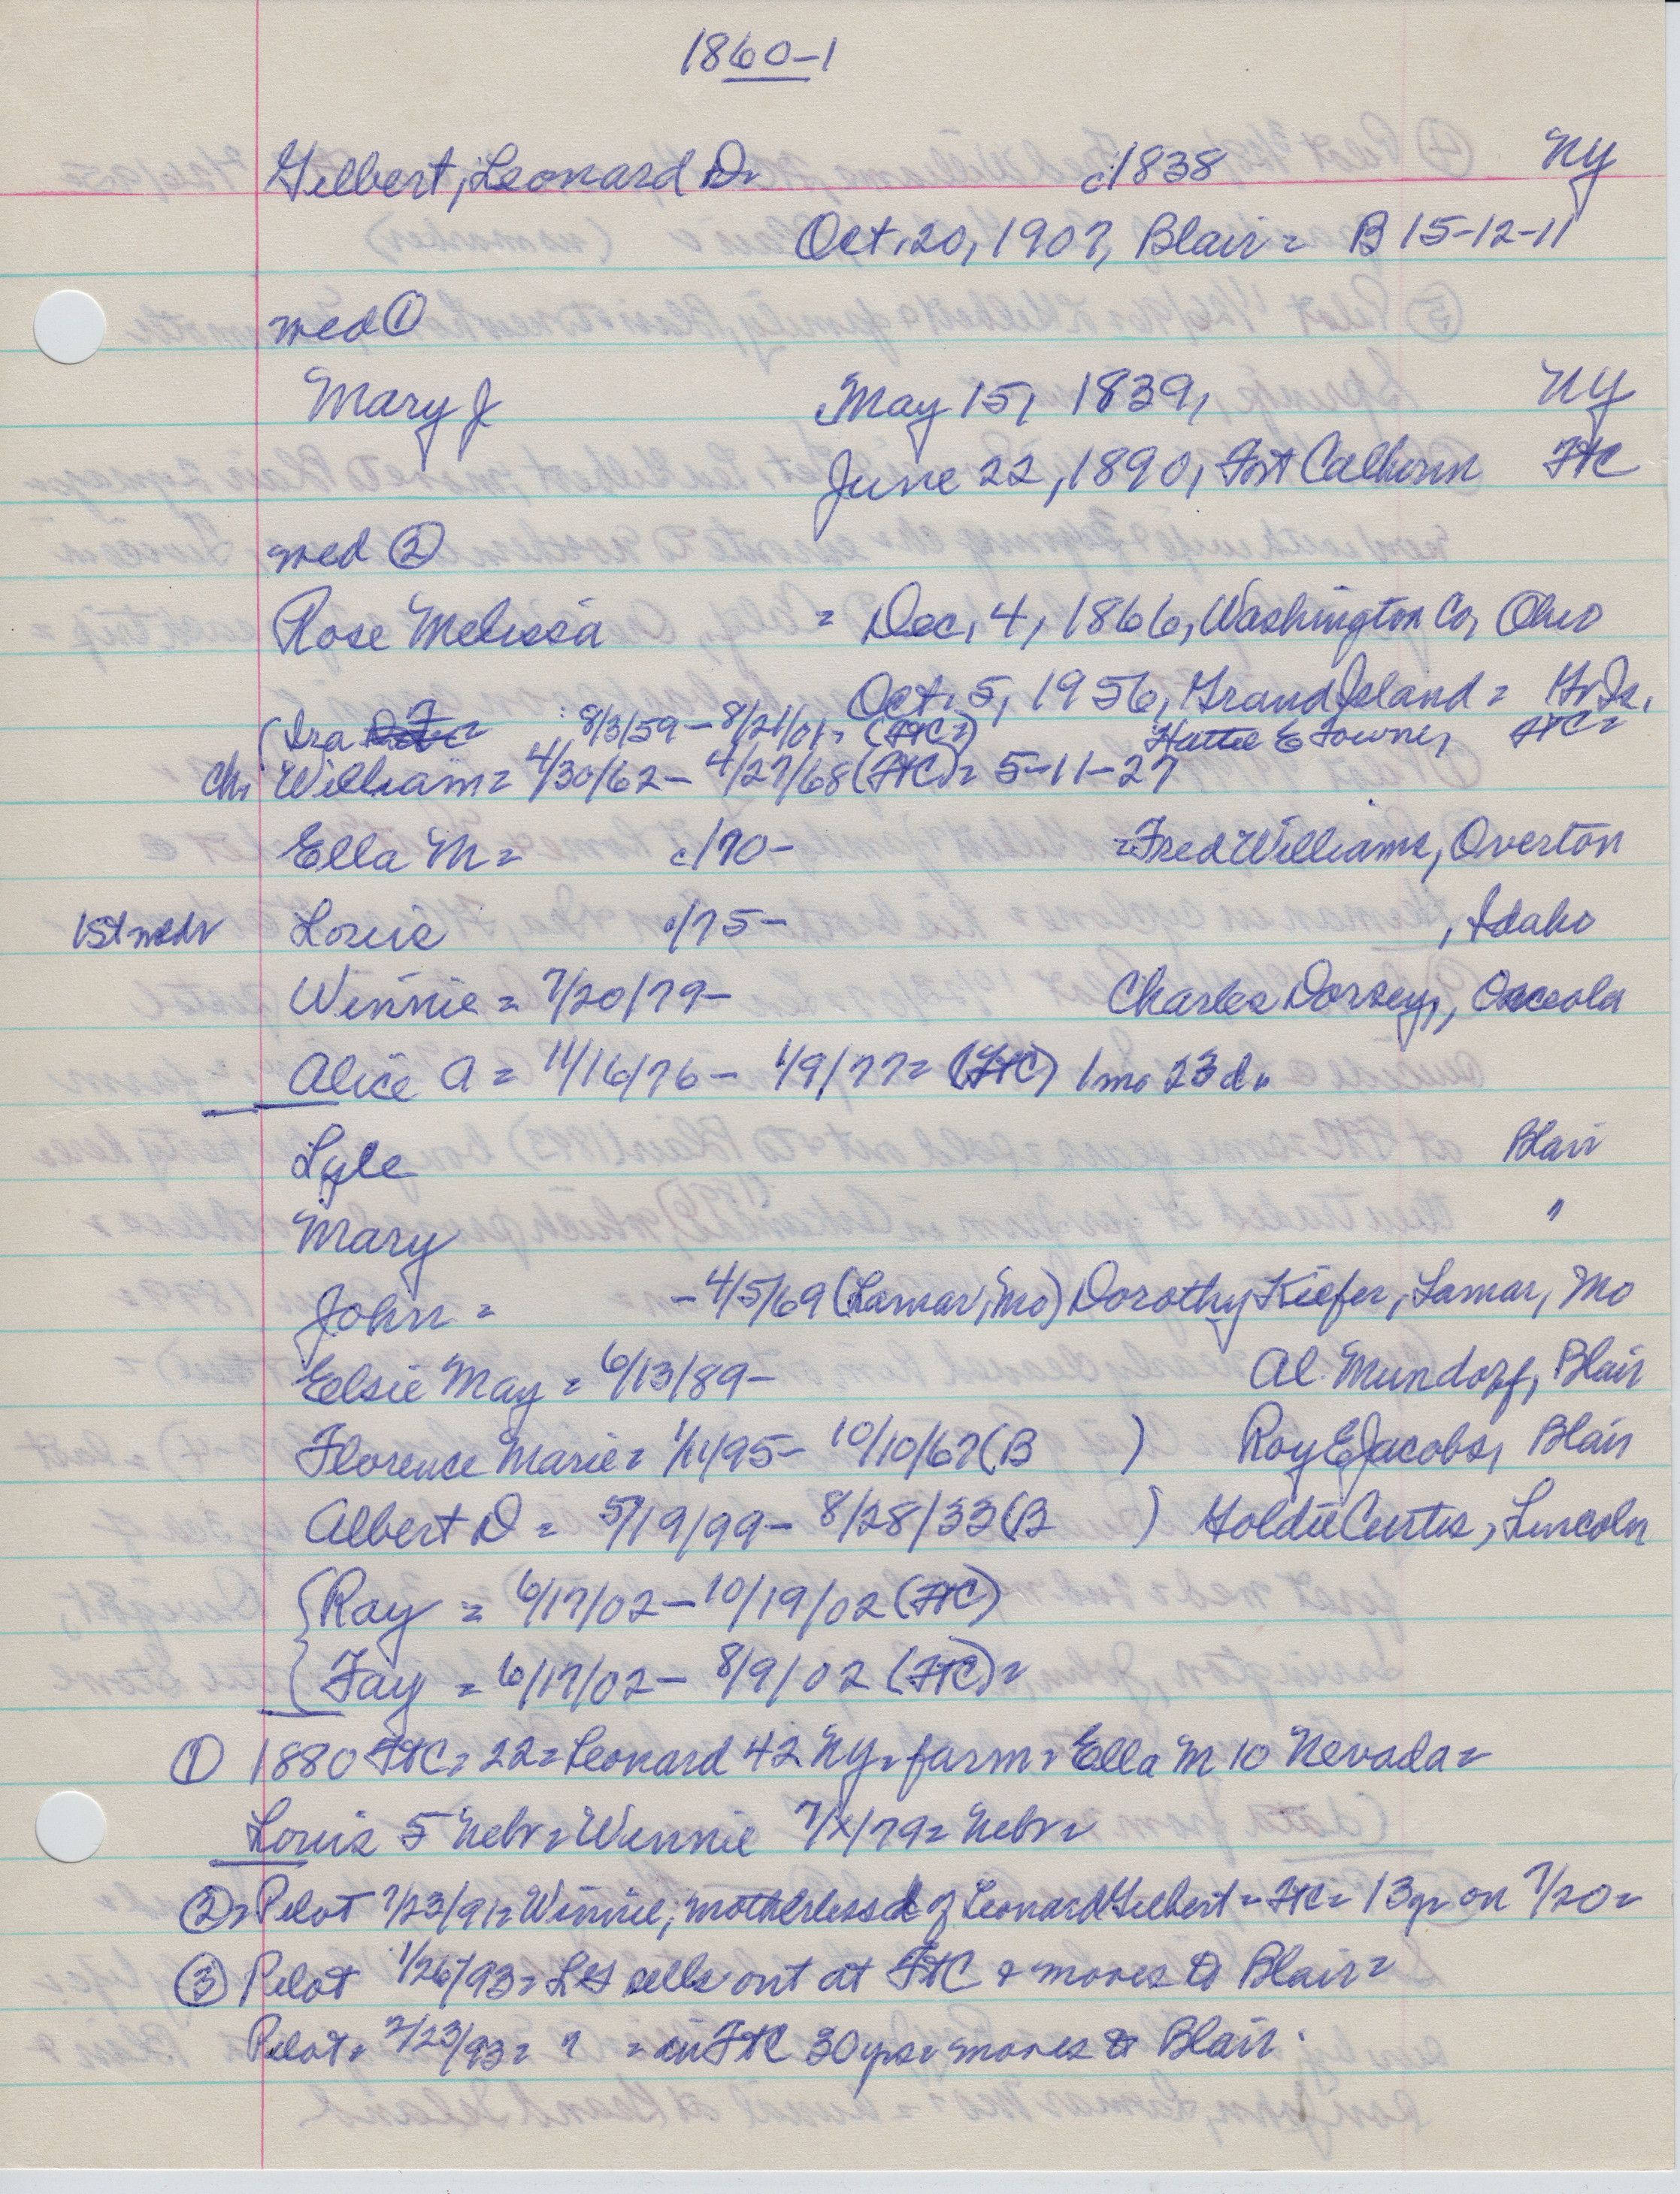 1860-1
Gilbert, Leonard D. c1838 NY
Oct. 20, 1907, Blair = B 15-12-11
med ①
Mary J May 15, 1839, NY
June 22, 1890, Fort Calhoun FtC
med ②
Rose Melissa = Dec. 4, 1866, Washington Co, Ohio
Oct. 5, 1956, Grand Island = Gr Is.
(Ira F = 8/3/59 - 8/21/01 = (FtC) Hattie E Towne, FtC =
ch. William = 4/30/62 - 4/27/68 (FtC) = 5-11-27
Ella M = c/70 - = Fred Williams, Overton
1st med Louis c/75 - , Idaho
Winnie = 7/20/79 - Charles Dorsey, , Osceola
Alice A = 11/16/76 - 1/9/77 = (FtC) 1 mo 23 d.
Lyle Blair
Mary "
John = - 4/5/69 (Lamar, Mo) Dorothy Kiefer, Lamar, Mo
Elsie May = 6/13/89 - Al Mundorf, Blair
Florence Marie = 1/1/95 - 10/10/67 (B ) Roy E Jacobs, Blair
Albert D = 5/19/99 - 8/28/33 (B ) Goldie Curtis, Lincoln
{Ray = 6/17/02 - 10/19/02 (FtC)
{Fay = 6/17/02 - 8/9/02 (FtC) =
① 1880 FtC = 22 = Leonard 42 NY = farm = Ella M 10 Nevada =
Louis 5 Nebr = Winnie 7/x/79 = Nebr =
② = Pilot 7/23/91 = Winnie, motherless d of Leonard Gilbert = FtC = 13 yr on 7/20 =
③ Pilot 1/26/93 = LG sells out at FtC & moves to Blair =
Pilot = 2/23/93 = ? = in FtC 30 yrs = moves to Blair.